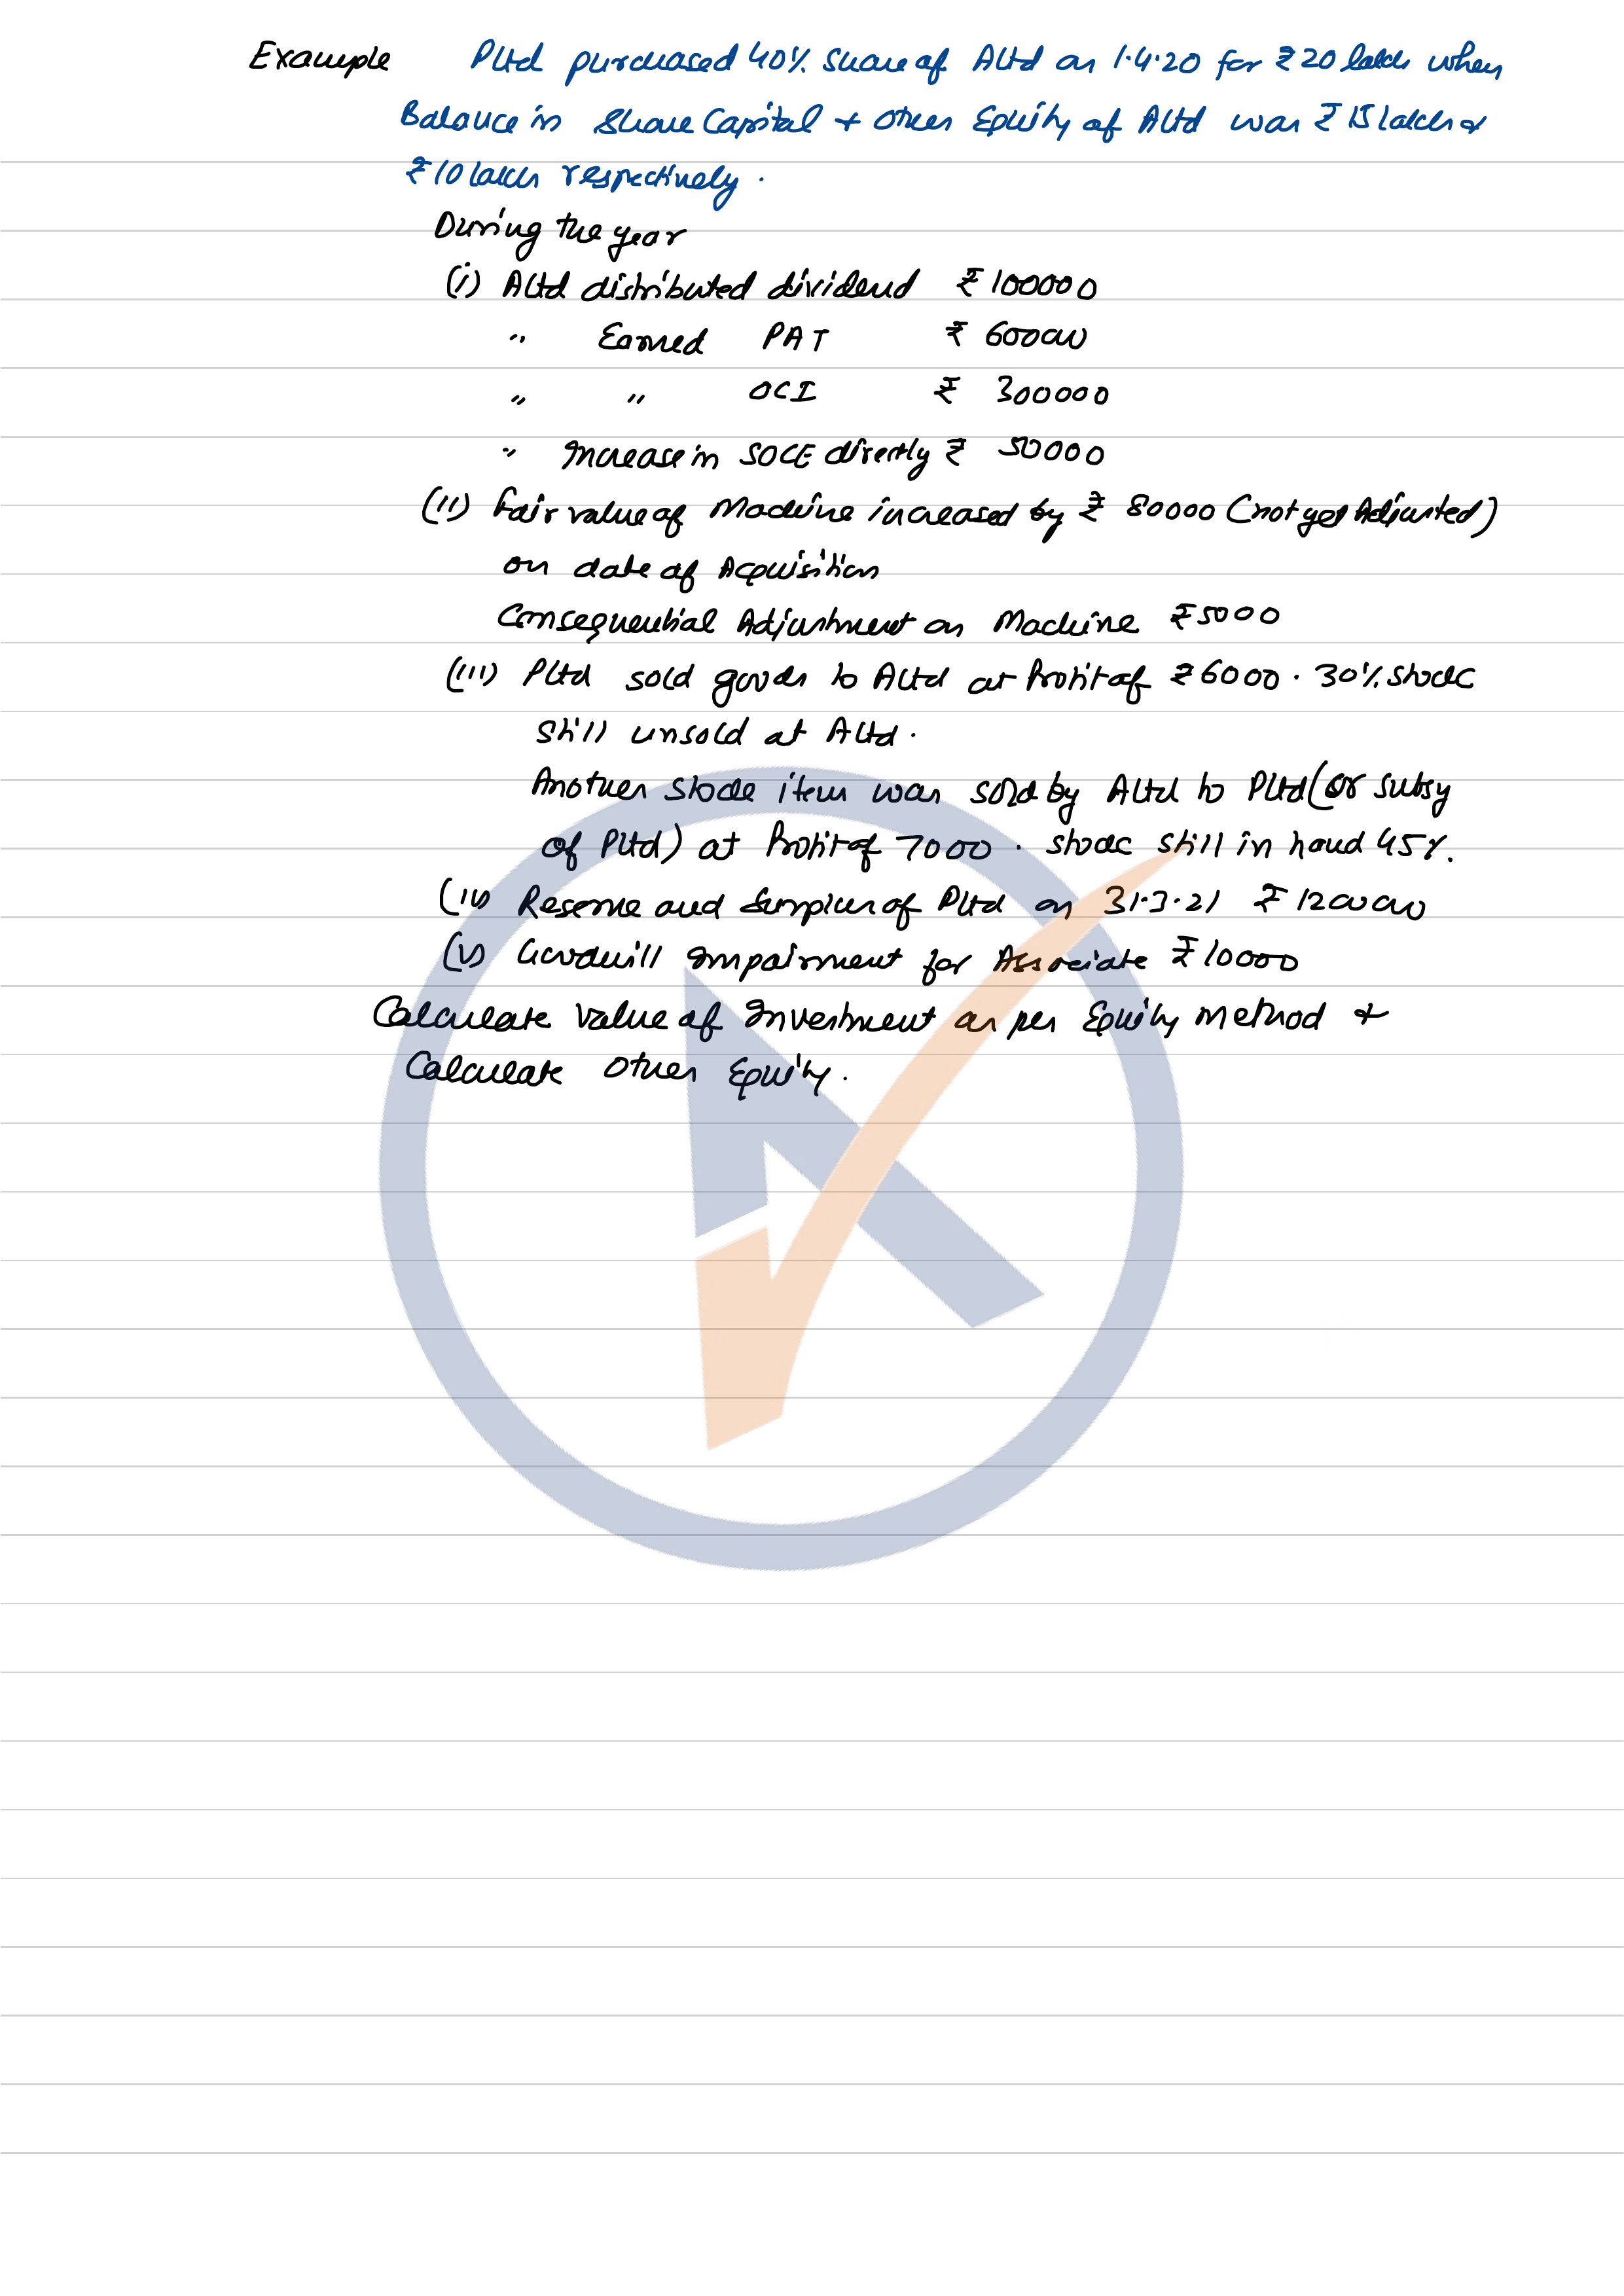 Example Pltd purchased 40% share of Altd on 1.4.20 for ₹20 lakh when
Balance in Share Capital + Other Equity of Altd was ₹ 15 lakh &
₹10 lakh respectively.
During the year
(i) Altd distributed dividend ₹ 100000
" Earned PAT ₹ 600000
" " OCI ₹ 300000
" Increase in SOCE directly ₹ 50000
(ii) Fair value of Machine increased by ₹ 80000 (not yet Adjusted)
on date of Acquisition
Consequential Adjustment on Machine ₹5000
(iii) Pltd sold goods to Altd at Profit of ₹6000. 30% stock
still unsold at Altd.
Another stock item was sold by Altd to Pltd (or subsy
of Pltd) at Profit of 7000. stock still in hand 45%.
(iv) Reserve and Surplus of Pltd on 31.3.21 ₹ 1200000
(v) Goodwill Impairment for Associate ₹10000
Calculate value of Investment as per Equity Method +
Calculate Other Equity.